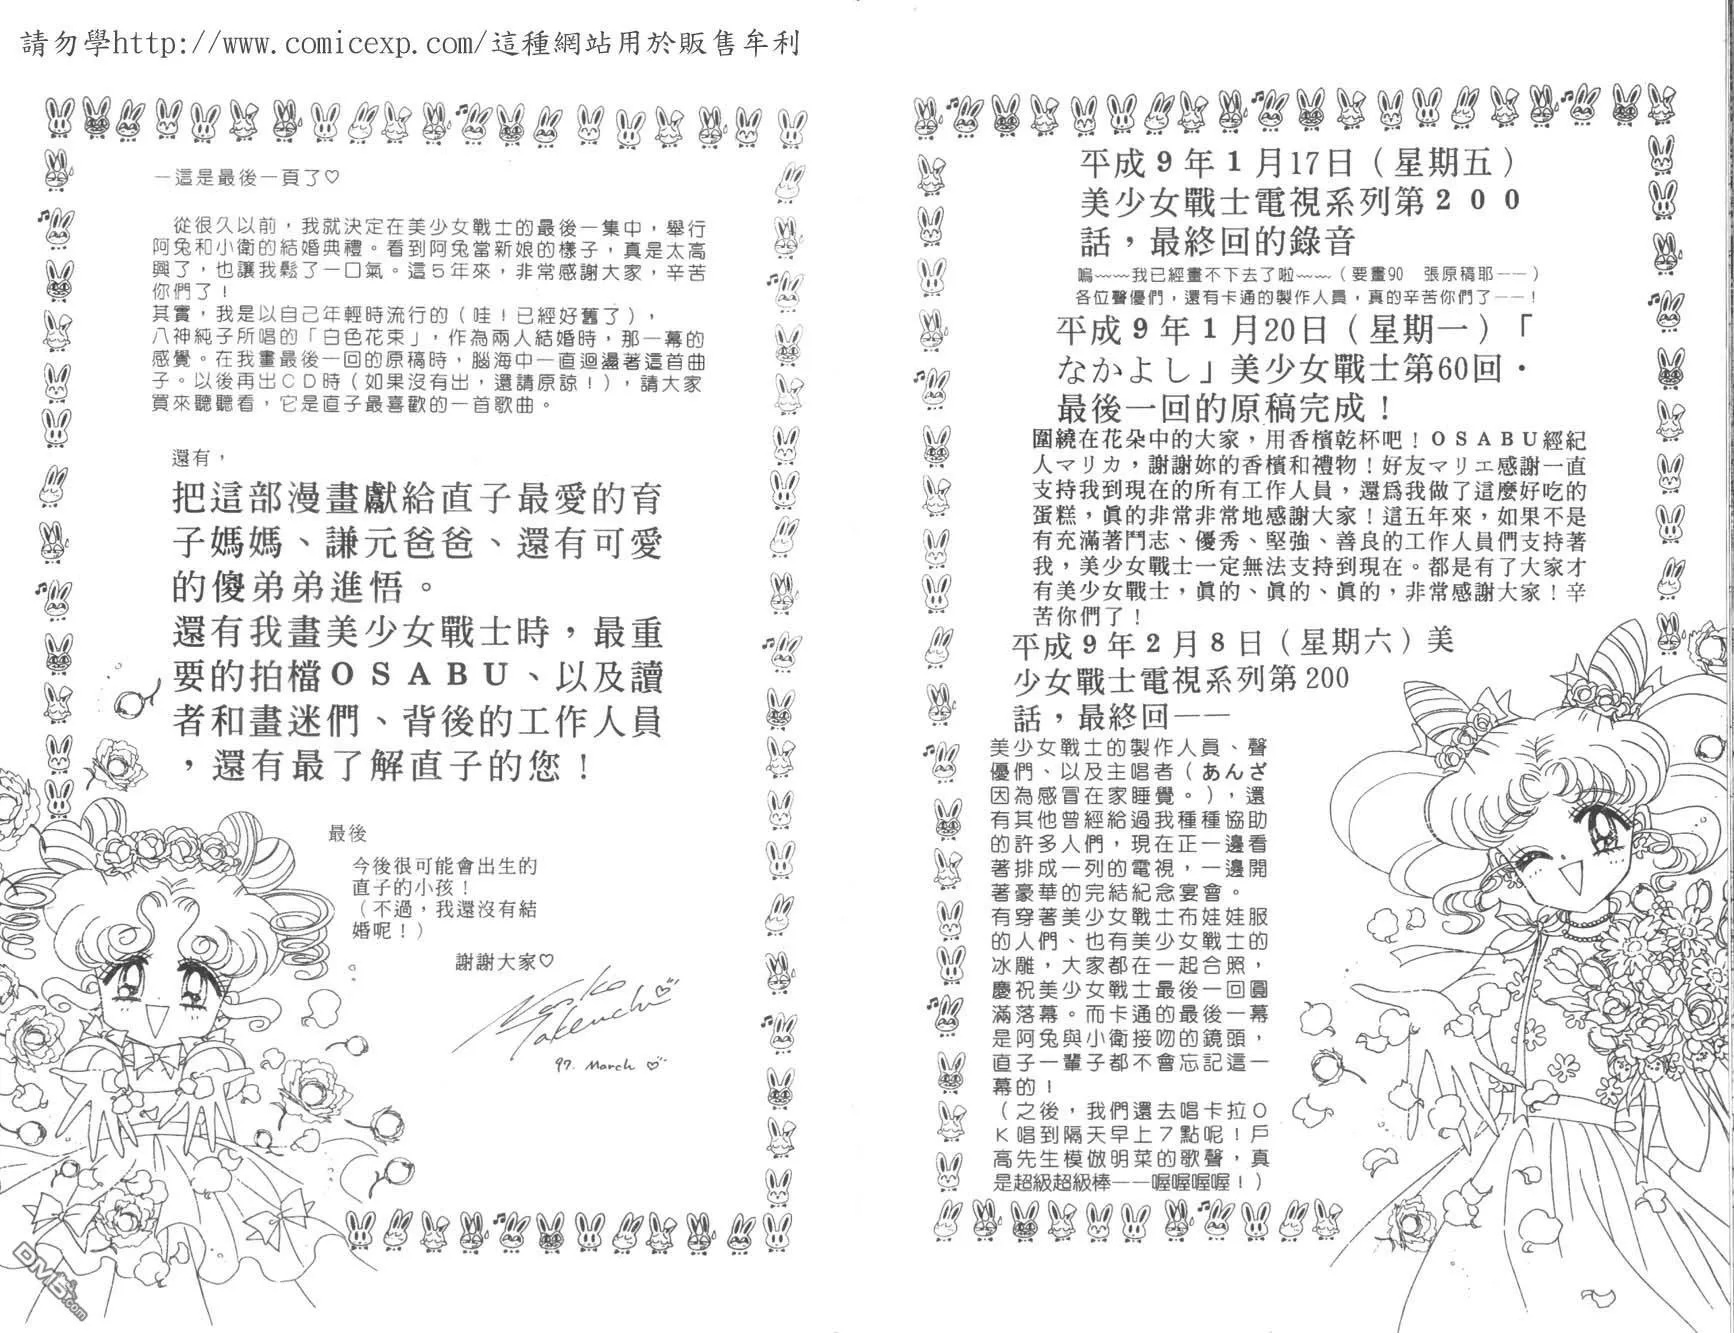 請勿學http://www.comicexp.com/這種網站用於販售牟利
平成9年1月17日(星期五)
美少女戰士電視系列第200
話，最終回的錄音
嗚~~~我已經畫不下去了啦~~~(要畫90 張原稿耶——)
各位聲優們，還有卡通的製作人員，真的辛苦你們了——!
平成9年1月20日(星期一)「
なかよし」美少女戰士第60回・
最後一回的原稿完成!
圍繞在花朵中的大家，用香檳乾杯吧!OSABU經紀
人マリカ，謝謝妳的香檳和禮物!好友マリエ感謝一直
支持我到現在的所有工作人員，還爲我做了這麼好吃的
蛋糕，眞的非常非常地感謝大家!這五年來，如果不是
有充滿著鬥志、優秀、堅強、善良的工作人員們支持著
我，美少女戰士一定無法支持到現在。都是有了大家才
有美少女戰士，眞的、眞的、眞的，非常感謝大家!辛
苦你們了!
平成9年2月8日(星期六)美
少女戰士電視系列第200
話，最終回——
美少女戰士的製作人員、聲
優們、以及主唱者(あんざ
因為感冒在家睡覺。)，還
有其他曾經給過我種種協助
的許多人們，現在正一邊看
著排成一列的電視，一邊開
著豪華的完結紀念宴會。
有穿著美少女戰士布娃娃服
的人們、也有美少女戰士的
冰雕，大家都在一起合照，
慶祝美少女戰士最後一回圓
滿落幕。而卡通的最後一幕
是阿兔與小衛接吻的鏡頭，
直子一輩子都不會忘記這一
幕的!
(之後，我們還去唱卡拉O
K唱到隔天早上7點呢!戶
高先生模倣明菜的歌聲，真
是超級超級棒——喔喔喔喔!)
—這是最後一頁了♡
從很久以前，我就決定在美少女戰士的最後一集中，舉行
阿兔和小衛的結婚典禮。看到阿兔當新娘的樣子，真是太高
興了，也讓我鬆了一口氣。這5年來，非常感謝大家，辛苦
你們了!
其實，我是以自己年輕時流行的(哇!已經好舊了)，
八神純子所唱的「白色花束」，作為兩人結婚時，那一幕的
感覺。在我畫最後一回的原稿時，腦海中一直迴盪著這首曲
子。以後再出CD時(如果沒有出，還請原諒!)，請大家
買來聽聽看，它是直子最喜歡的一首歌曲。
還有，
把這部漫畫獻給直子最愛的育
子媽媽、謙元爸爸、還有可愛
的傻弟弟進悟。
還有我畫美少女戰士時，最重
要的拍檔OSABU、以及讀
者和畫迷們、背後的工作人員
，還有最了解直子的您!
最後
今後很可能會出生的
直子的小孩!
(不過，我還沒有結
婚呢!)
謝謝大家♡
Naoko
Takeuchi♡
97. March ♡
DM5.com